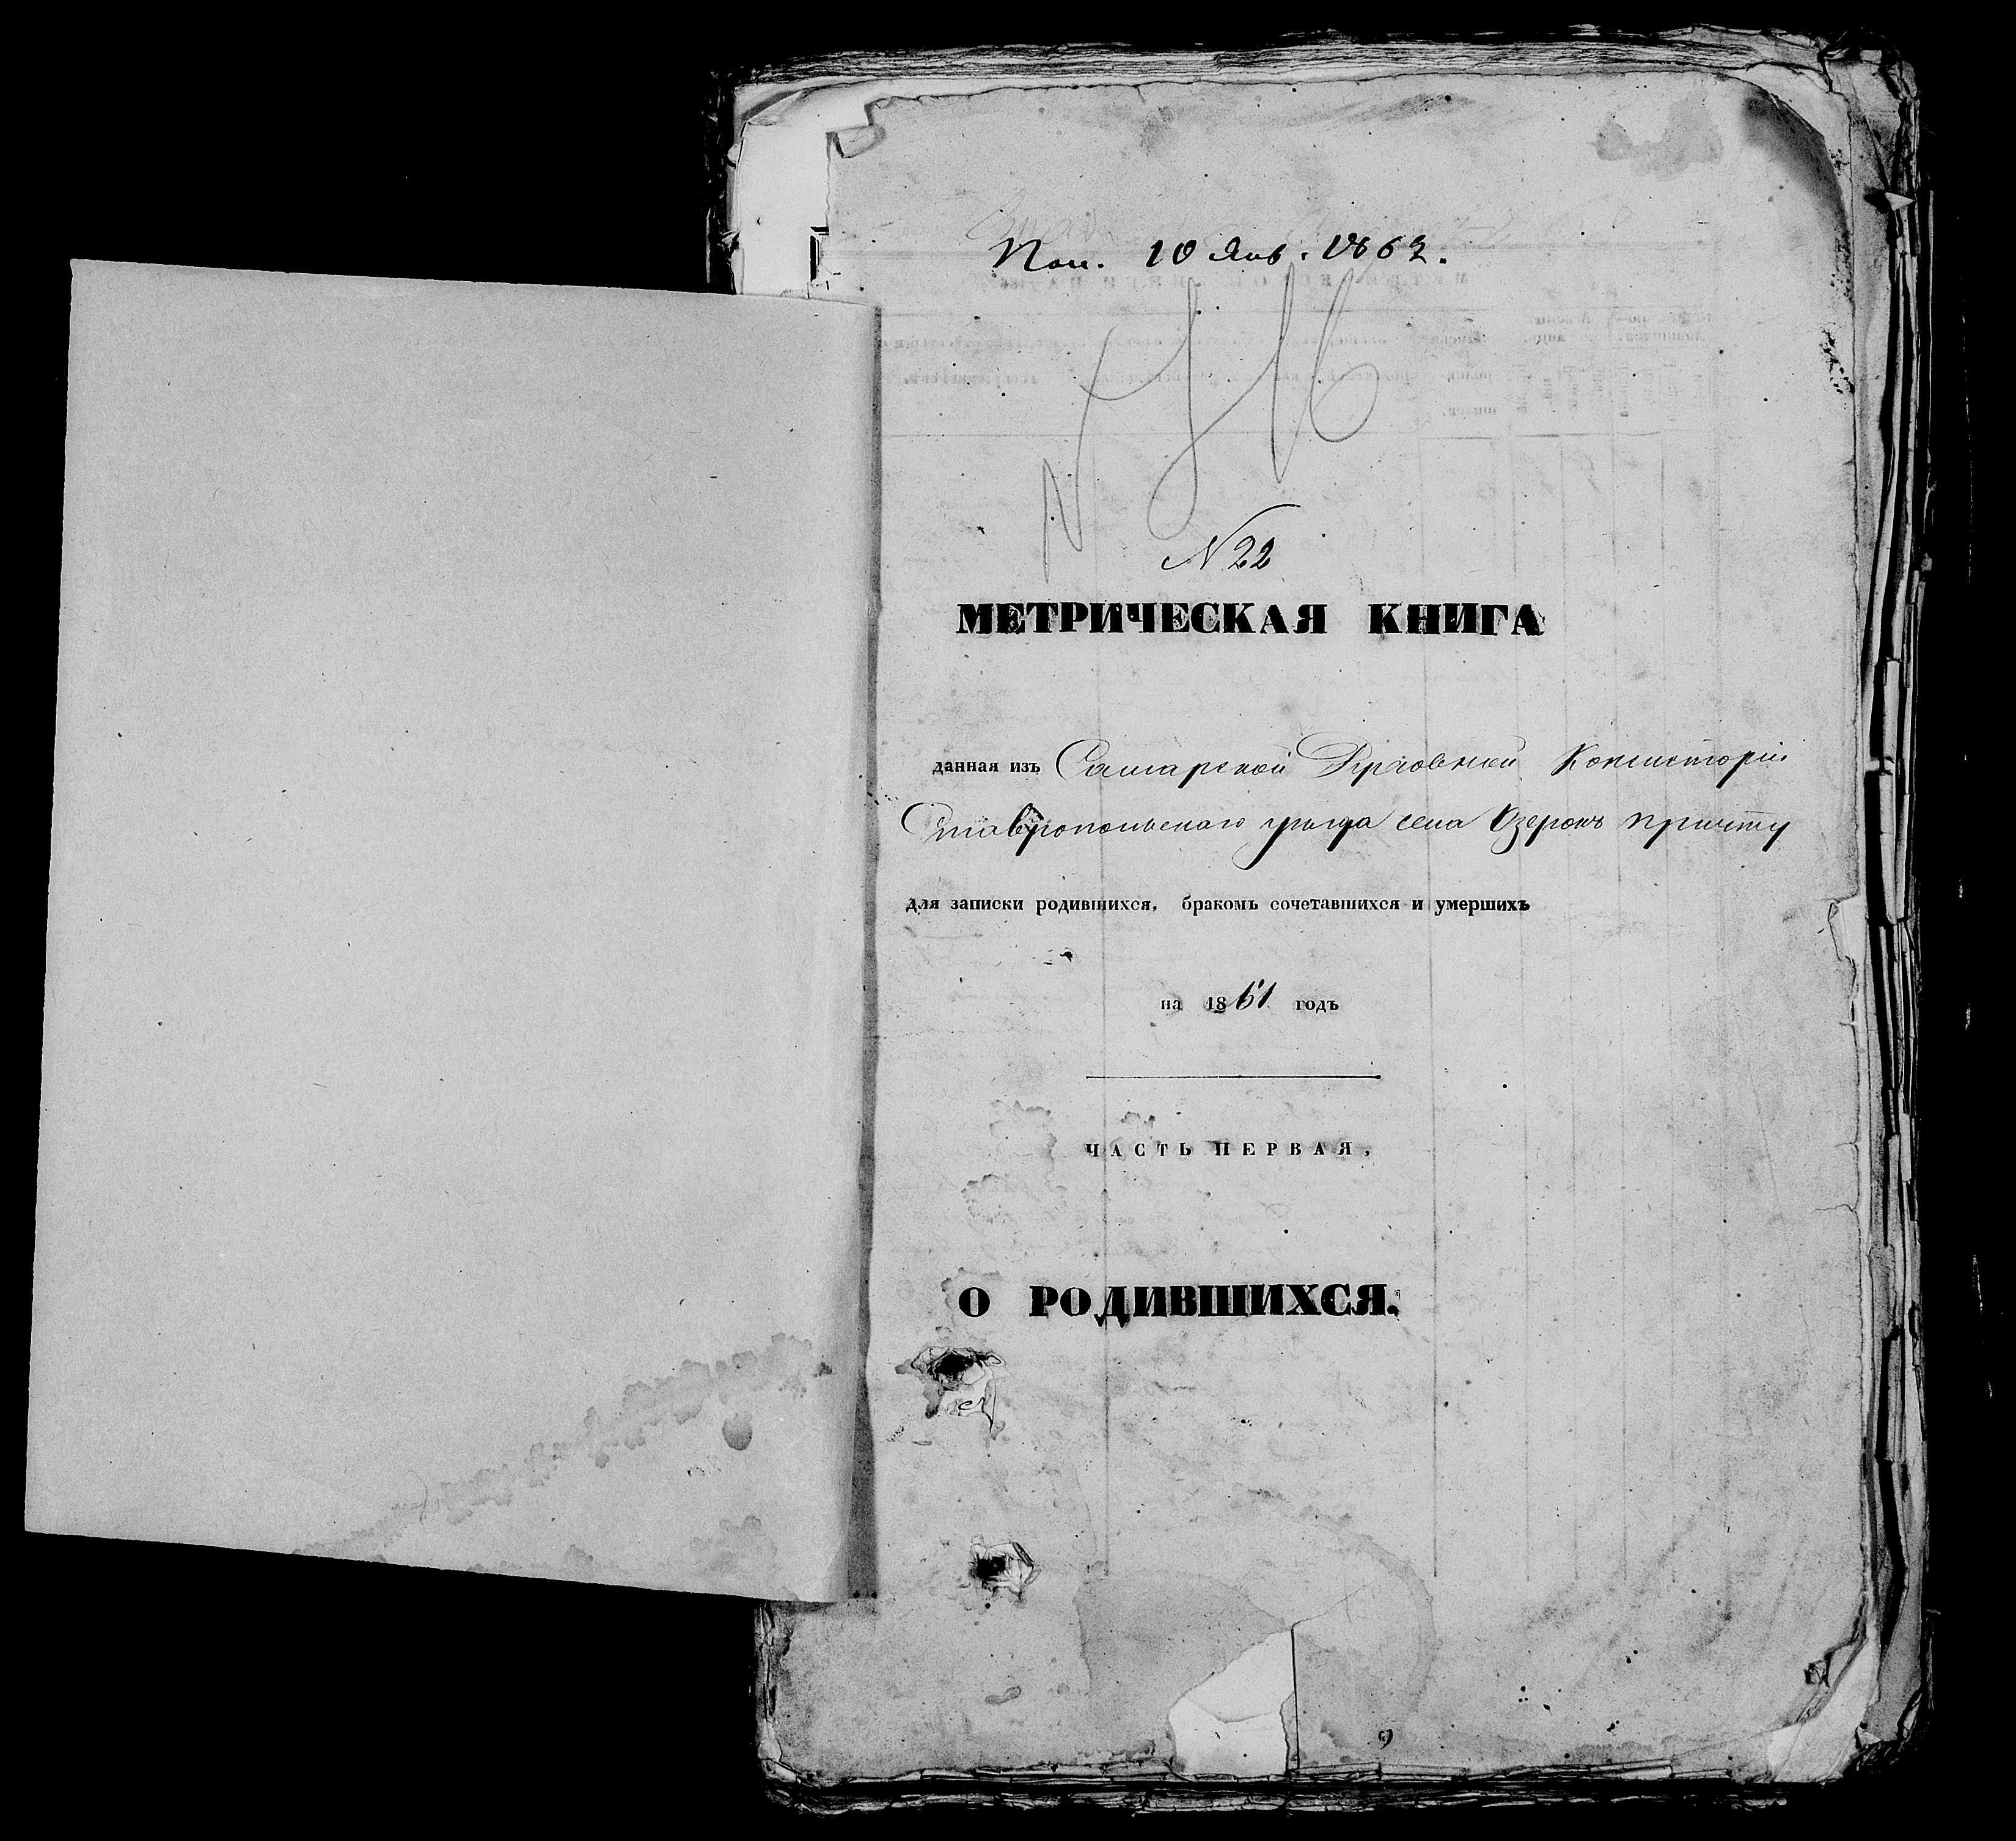 Пол. 10 Янв. 1862.
N 22
МЕТРИЧЕСКАЯ КНИГА
данная изъ Самарской Духовной Консисторіи
Ставропольскаго уѣзда села Озерокъ причту
для записки родившихся, бракомъ сочетавшихся и умершихъ
на 1861 годъ
ЧАСТЬ ПЕРВАЯ,
О РОДИВШИХСЯ.